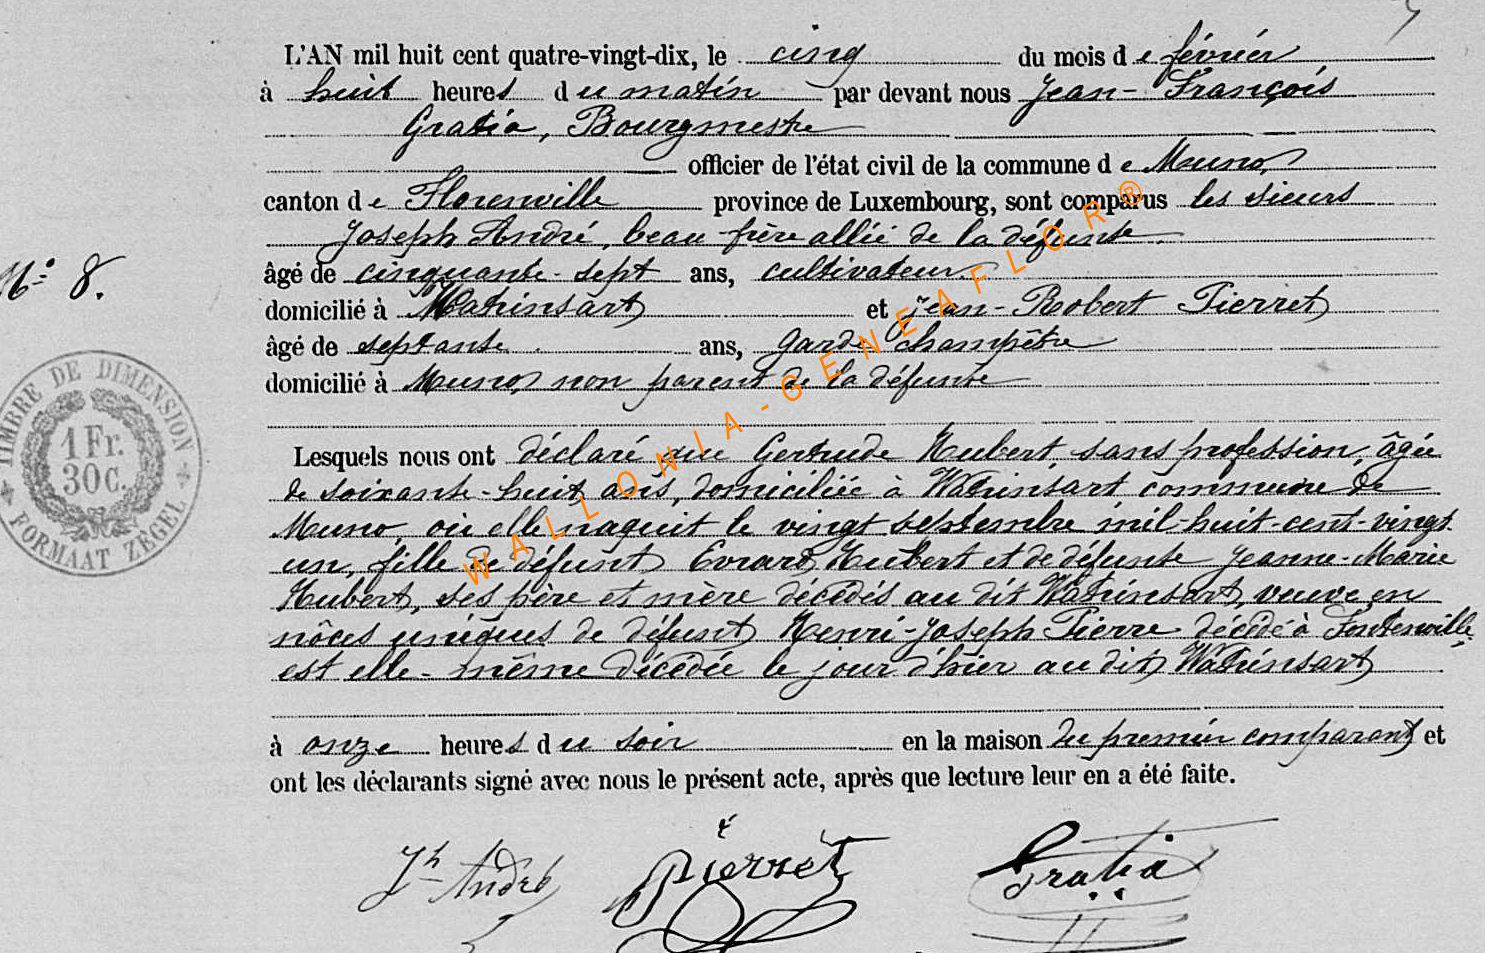 L'AN mil huit cent quatre-vingt-dix, le cinq du mois de février
à huit heures du matin par devant nous Jean-François
Gratia, Bourgmestre
officier de l'état civil de la commune de Muno,
canton de Florenville province de Luxembourg, sont comparus les sieurs
Joseph André, beau-frère allié de la défunte.
âgé de cinquante-sept ans, cultivateur
N° 8.
domicilié à Watrinsart et Jean-Robert Pierret
âgé de septante ans, garde champêtre
domicilié à Muno, non parent de la défunte
TIMBRE DE DIMENSION
1 Fr.
30 C.
FORMAAT ZEGEL
Lesquels nous ont déclaré que Gertrude Hubert, sans profession, âgée
de soixante-huit ans, domiciliée à Watrinsart commune de
Muno, où elle naquit le vingt septembre mil-huit-cent-vingt
un, fille de défunt Evrard Hubert et de défunte Jeanne-Marie
Hubert, ses père et mère décédés au dit Watrinsart, veuve en
nôces uniques de défunt Henri-Joseph Pierre décédé à Fontenville,
est elle-même décédée le jour d'hier au dit Watrinsart
à onze heures du soir en la maison du premier comparant et
ont les déclarants signé avec nous le présent acte, après que lecture leur en a été faite.
Jh André Pierret Gratia
WALLONIA-GENEAFLOR®